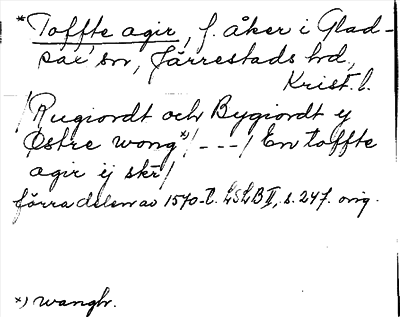 *Toffte agir, f. åker i Glad-
sax sn, Järrestads hd,
Krist. l.
/Rugiordt och Bygiordt ij
Østre wong*)/ - - - / En toffte
agir ij skr/
förra delen av 1570-t. LSLB II, s. 247. orig.
*) wanghr.